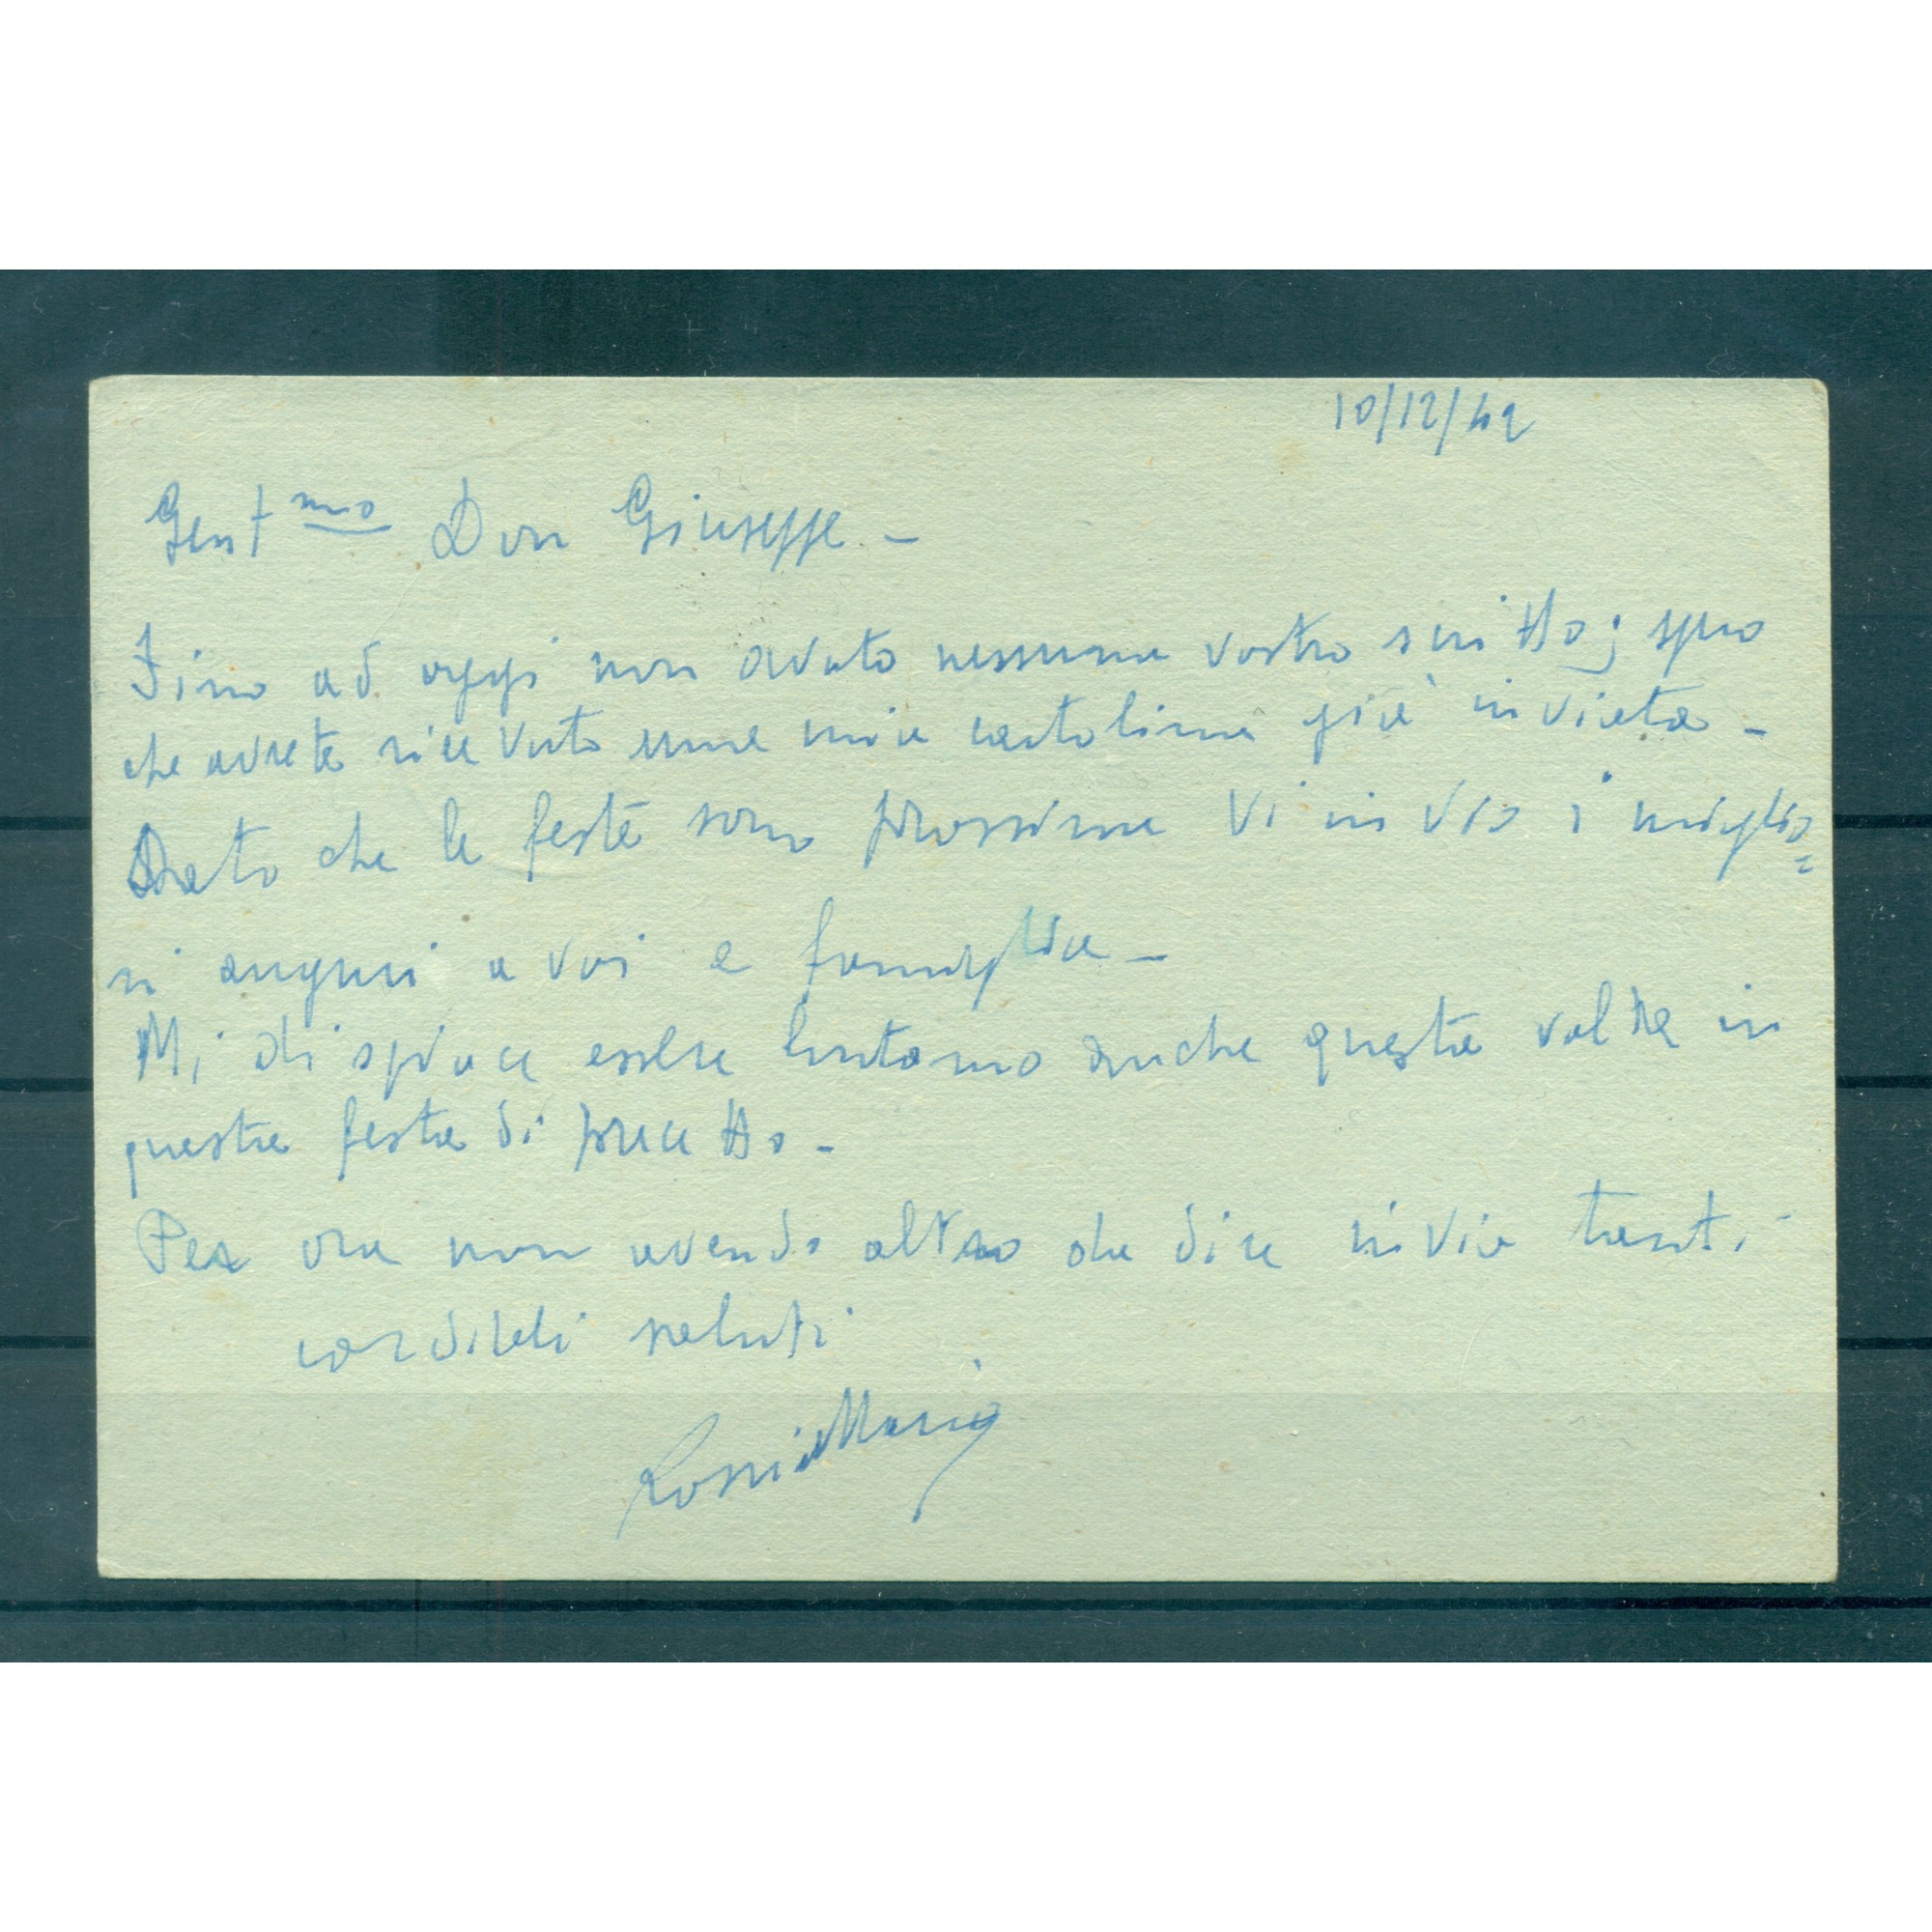 10/12/42
Gent mo Don Giuseppe -
Fino ad oggi non avuto nessuno vostro scritto; spero
che avrete ricevuto una mia cartolina già inviata -
Dato che le feste sono prossime Vi invio i miglio=
ri auguri a voi e famiglia -
Mi dispiace essere lontano anche questa volta in
questa festa di precetto -
Per ora non avendo altro da dire invio tanti
cordiali saluti
Rossi Mario